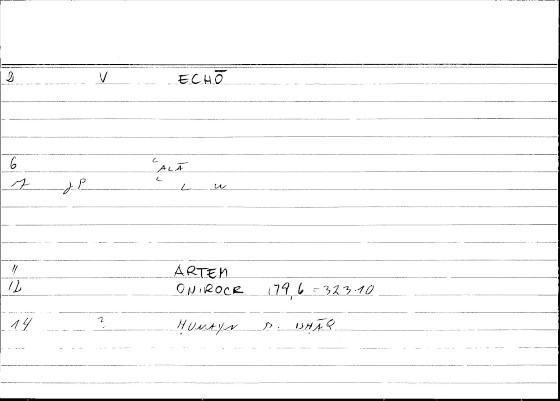 2 V ECHŌ
6 ʿALĀ
7 JP ʿL W
11 ARTEM
12 ONIROCR 179,6 = 323.10
14 ? ḤUNAYN B. ISḤĀQ